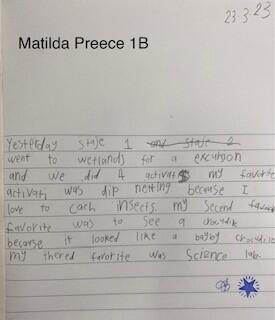 23.3.23
Matilda Preece 1B
Yesterday staje 1 and staje 2
went to wetlands for a excution
and we did 4 activats my favorite
activati was dip netting because I
love to cach insects. my secend favorite
favorite was to see a crocudile
because it looked like a bayby crocudile
my thered favorite was science lab.